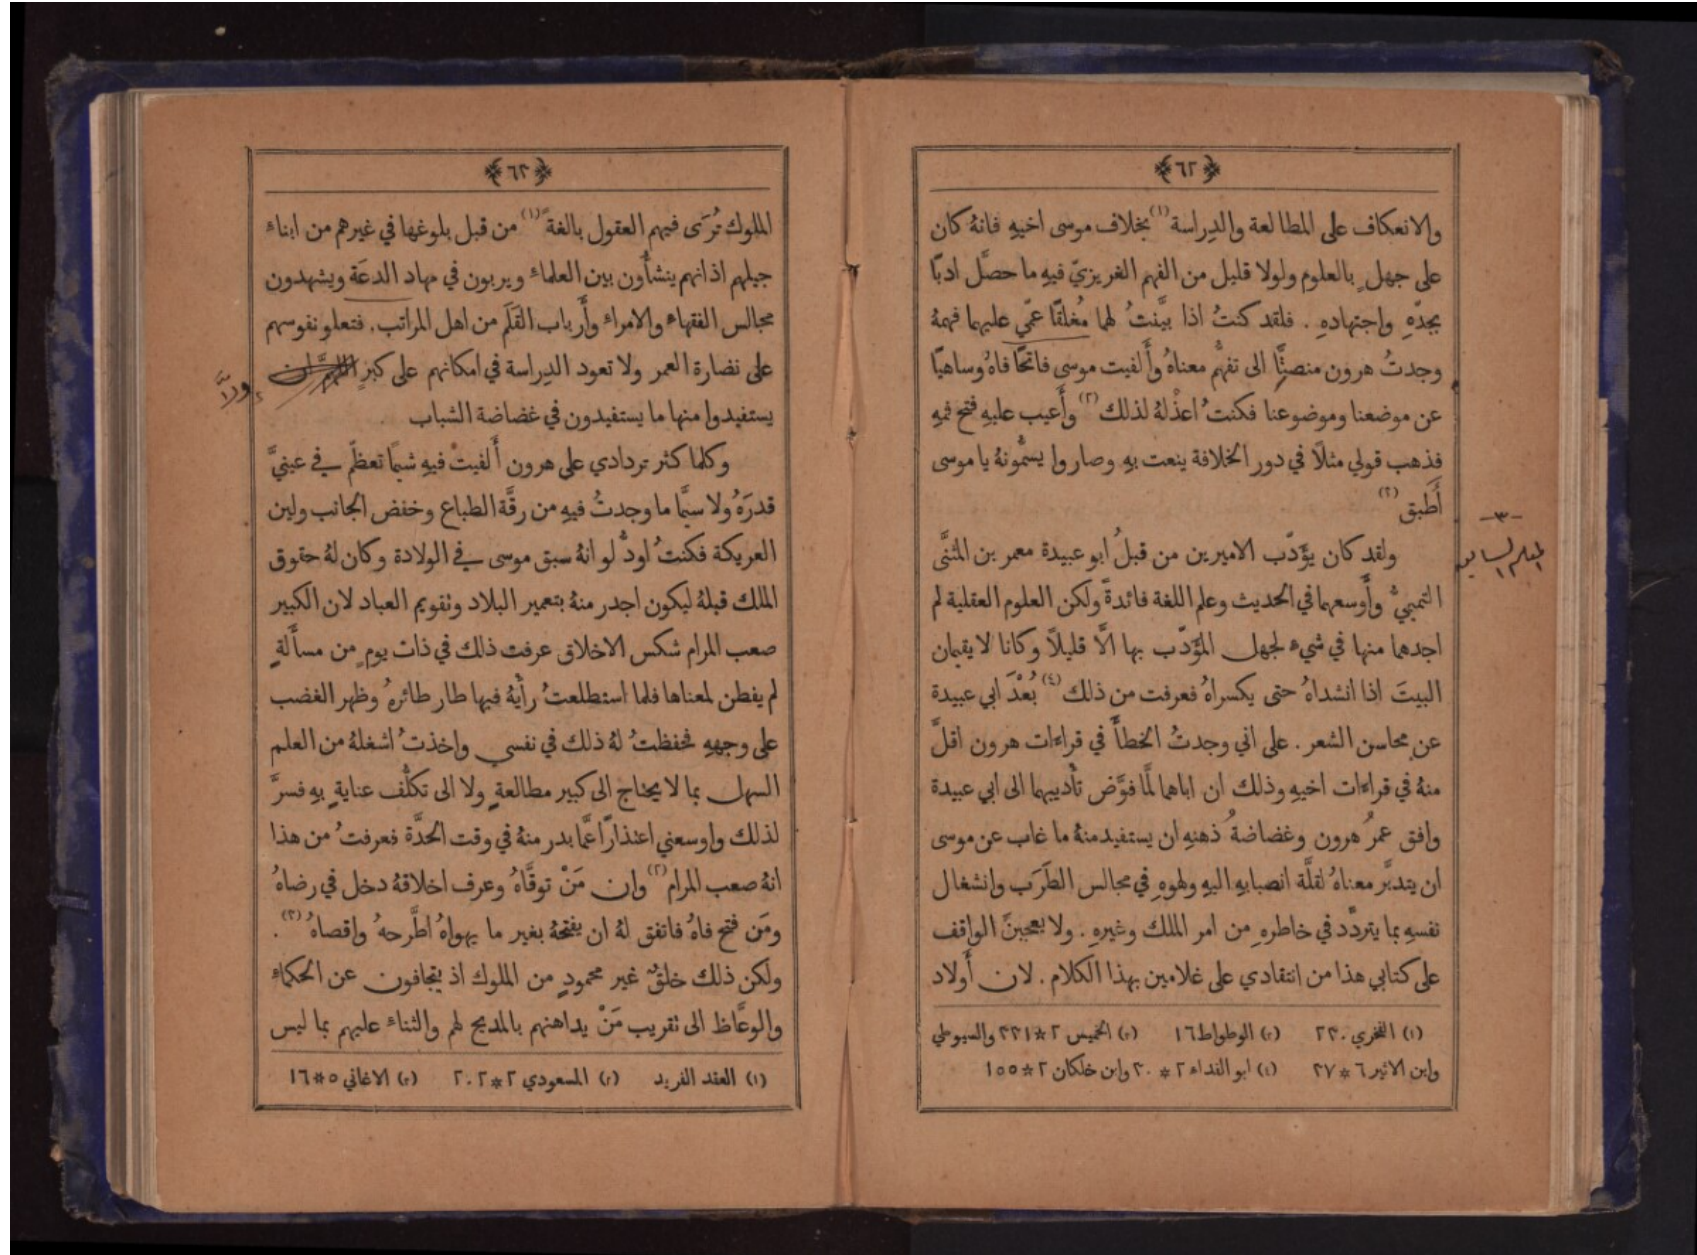 ﴿٦٢﴾
والانعكاف على المطالعة والدِراسة (١) بخلاف موسى اخيهِ فانهُ كان
على جهلٍ بالعلوم ولولا قليل من الفهم الغريزيّ فيهِ ما حصَّل ادبًا
بجدّهِ واجتهادهِ . فلقد كنتُ اذا بيَّنتُ لهما مُغلقًا عمّي عليهما فهمهُ
وجدتُ هرون منصتًا الى تفهُّم معناهُ وأَلفيت موسى فاتحًا فاهُ وساهيًا
عن موضعنا وموضوعنا فكنتُ اعذُلهُ لذلك (٢) وأَعيب عليهِ فتح فمهِ
فذهب قولي مثلًا في دور الخلافة ينعت بهِ وصاروا يسمُّونهُ يا موسى
أَطبق (٣)
-٣-
ولقد كان يؤَدّب الاميرين من قبلُ ابو عبيدة معمر بن المثنَّى
التميميُّ وأَوسعهما في الحديث وعلم اللغة فائدةً ولكن العلوم العقلية لم
اجدهما منها في شيء لجهل المؤَدّب بها الَّا قليلًا وكانا لا يقيمان
البيتَ اذا انشداهُ حتى يكسراهُ فعرفت من ذلك (٤) بُعْدَ ابي عبيدة
عن محاسن الشعر . على اني وجدتُ الخطأَ في قراءات هرون اقلَّ
منهُ في قراءات اخيهِ وذلك ان اباهما لمَّا فوَّض تأْديبهما الى ابي عبيدة
وافق عمرُ هرون وغضاضةُ ذهنهِ ان يستفيد منهُ ما غاب عن موسى
ان يتدبَّر معناهُ لقلَّة انصبابهِ اليهِ ولهوهِ في مجالس الطَرَب وانشغال
نفسهِ بما يتردَّد في خاطرهِ من امر الملك وغيرهِ . ولا يعجبنَّ الواقف
على كتابي هذا من انتقادي على غلامين بهذا الكلام . لان أَولاد
(١) الفخري ٢٣٠ (٢) الوطواط ١٦ (٣) الخميس ٢*٣٣١ والسيوطي
وابن الاثير ٦*٣٧ (٤) ابو الفداء ٢*٣٠ وابن خلكان ٢*١٥٥
﴿٦٣﴾
الملوك تُرَى فيهم العقول بالغةً (١) من قبل بلوغها في غيرهم من ابناء
جيلهم اذ انهم ينشأُون بين العلماء ويربون في مهاد الدعَة ويشهدون
مجالس الفقهاء والامراء وأَرباب القَلَم من اهل المراتب . فتعلو نفوسهم
على نضارة العمر ولا تعود الدِراسة في امكانهم على كبرٍ
يستفيدوا منها ما يستفيدون في غضاضة الشباب
وكلما كثر تردادي على هرون أَلفيتْ فيهِ شيمًا تعظّم في عينيَّ
قدرَهُ ولا سيَّما ما وجدتُ فيهِ من رقَّة الطباع وخفض الجانب ولين
العريكة فكنتُ اودُّ لو انهُ سبق موسى في الولادة وكان لهُ حقوق
الملك قبلهُ ليكون اجدر منهُ بتعمير البلاد وتقويم العباد لان الكبير
صعب المرام شكس الاخلاق عرفت ذلك في ذات يومٍ من مسأَلةٍ
لم يفطن لمعناها فلما استطلعتُ رأْيهُ فيها طار طائرهُ وظهر الغضب
على وجههِ فحفظتُ لهُ ذلك في نفسي واخذتُ اشغلهُ من العلم
السهل بما لا يحتاج الى كبير مطالعةٍ ولا الى تكلُّف عنايةٍ بهِ فسرَّ
لذلك واوسعني اعتذارًا عمَّا بدر منهُ في وقت الحدَّة فعرفتُ من هذا
انهُ صعب المرام (٢) وان مَنْ توقَّاهُ وعرف اخلاقهُ دخل في رضاهُ
ومَن فتح فاهُ فاتفق لهُ ان يفتحهُ بغير ما يهواهُ اطَّرحهُ واقصاهُ (٣) .
ولكن ذلك خلقٌ غير محمودٍ من الملوك اذ يتجافون عن الحكماء
والوعَّاظ الى تقريب مَنْ يداهنهم بالمديح لهم والثناء عليهم بما ليس
(١) العقد الفريد (٢) المسعودي ٢*٢٠٢ (٣) الاغاني ٥*١٦